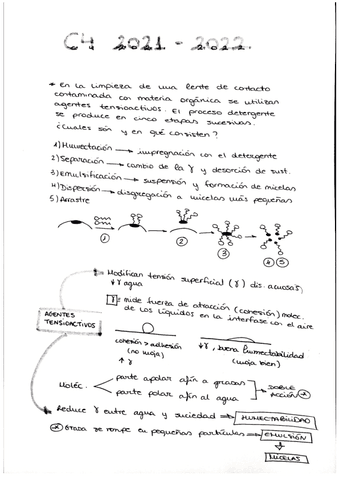 C4 2021 - 2022.
* En la limpieza de una lente de contacto
contaminada con materia orgánica se utilizan
agentes tensioactivos. El proceso detergente
se produce en cinco etapas sucesivas.
¿Cuáles son y en qué consisten?
1) Humectación → impregnación con el detergente
2) Separación → cambio de la γ y desorción de sust.
3) Emulsificación → suspensión y formación de micelas
4) Dispersión → disgregación a micelas más pequeñas
5) Arrastre
① ② ③ ④⑤
AGENTES TENSIOACTIVOS
Modifican tensión superficial (γ) dis. acuosas.
↓γ agua
γ = mide fuerza de atracción (cohesión) molec.
de los líquidos en la interfase con el aire
cohesión > adhesión
(no moja)
↑γ
↓γ, buena humectabilidad
(moja bien)
Moléc.
parte apolar afín a grasas
parte polar afín al agua
DOBLE ACCIÓN *
Reduce γ entre agua y suciedad ⇒ HUMECTABILIDAD
* Grasa se rompe en pequeñas partículas ⇒ EMULSIÓN
MICELAS